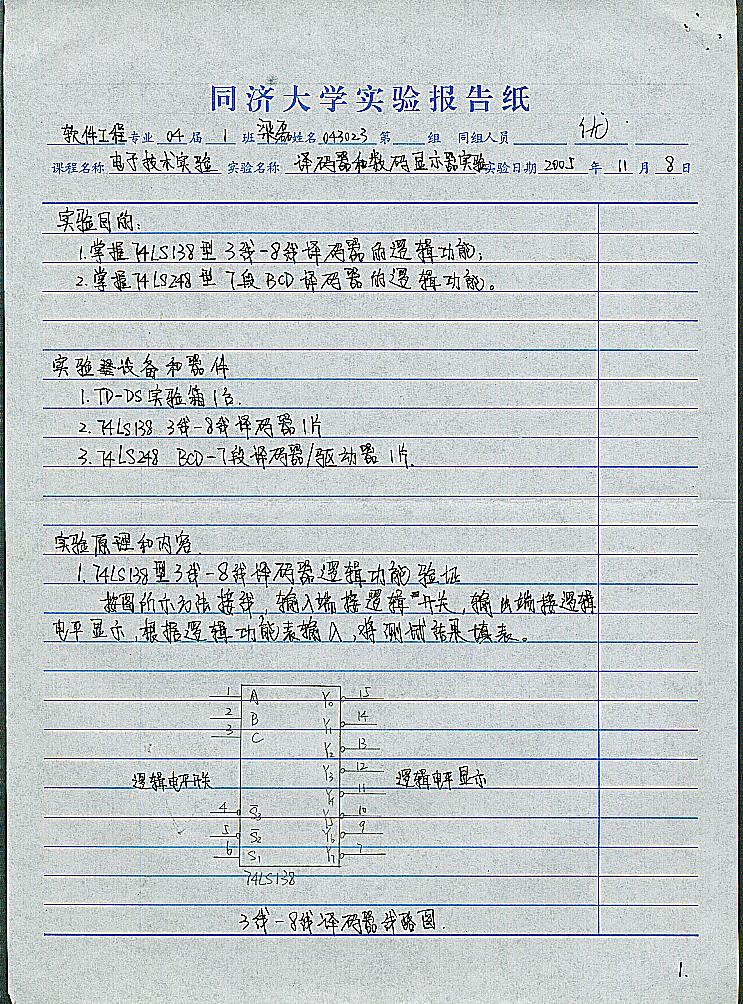 同济大学实验报告纸
软件工程专业 04届 1班 梁磊姓名 043023 第 组 同组人员 优
课程名称 电子技术实验 实验名称 译码器和数码显示器实验 实验日期 2005年 11月 8日
实验目的:
1.掌握74LS138型3线-8线译码器的逻辑功能;
2.掌握74LS248型7段BCD译码器的逻辑功能。
实验设备和器件
1.TD-DS实验箱1台.
2.74LS138 3线-8线译码器1片
3.74LS248 BCD-7段译码器/驱动器1片.
实验原理和内容.
1.74LS138型3线-8线译码器逻辑功能验证
按图所示方法接线,输入端接逻辑开关,输出端接逻辑
电平显示,根据逻辑功能表输入,将测试结果填表。
1 A Y0 15
2 B Y1 14
3 C Y2 13
Y3 12
逻辑电平开关 逻辑电平显示
Y4 11
4 S̅3 Y5 10
5 S̅2 Y6 9
6 S1 Y7 7
74LS138
3线-8线译码器线路图.
1.